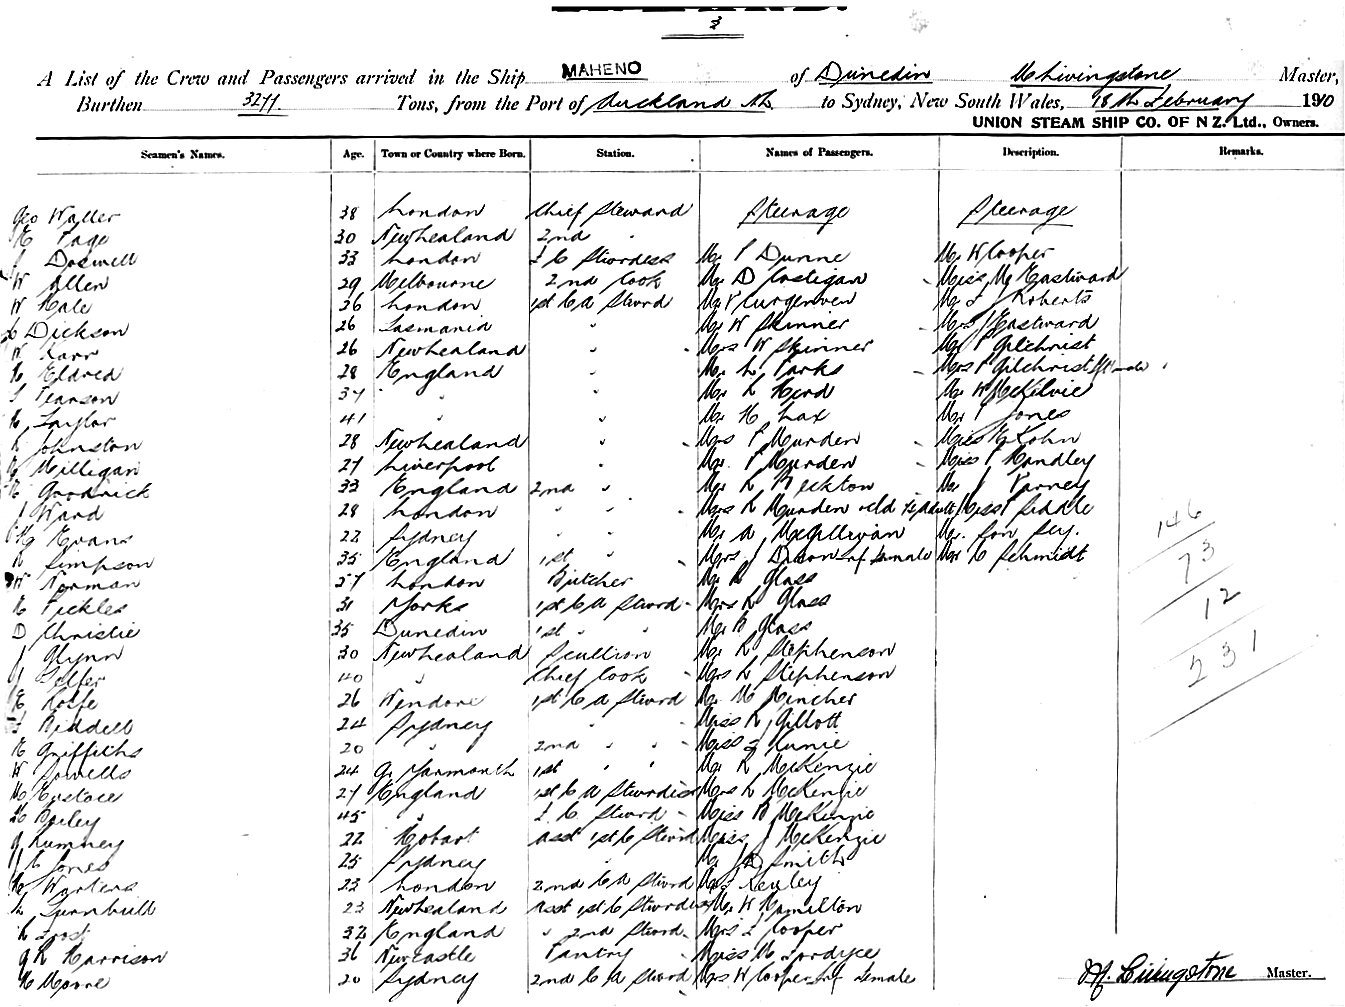 3
A List of the Crew and Passengers arrived in the Ship MAHENO of Dunedin McLivingstone Master,
Burthen 3277. Tons, from the Port of Auckland to Sydney, New South Wales, 18th February 1910
UNION STEAM SHIP CO. OF N Z. Ltd., Owners.
Seamen's Names. Age. Town or Country where Born. Station. Names of Passengers. Description. Remarks.
Geo Waller 38 London Chief Steward Steerage Steerage
Page 30 New Zealand 2nd "
Doswell 33 London Stwrdess Mr P Dunne Mr W Cooper
W Allen 29 Melbourne 2nd Cook Mr D Costigan Miss M Eastward
W Hale 26 London 1st C A Stwrd Mr Curgenven Mr J Roberts
Dickson 26 Tasmania " Mr W Skinner Mrs Eastward
W Karr 26 New Zealand " Mrs W Skinner Mr P Gilchrist
H Eldred 28 England " Mr L Parks Mrs P Gilchrist
Pearson 37 " " Mr L Herd Mr W McKelvie
H Taylor 41 " " Mr H Lax Mr P Jones
Johnston 28 New Zealand " Mrs P Murden Miss Kohn
Milligan 27 Liverpool " Mr P Murden Miss P Handley
33 England 2nd " Mr L Beckton Mr J Varney
J Ward 28 London " " Mrs L Murden Miss P Siddle
Evans 22 Sydney " " Mr A McGillivray Mr
Simpson 35 England 1st " Mrs J Dixon Inf female Mr C Schmidt
W Norman 57 London Butcher Mr R Glass
H Pickles 31 Yorks 1st C A Stwrd Mrs L Glass
D Christie 35 Dunedin 1st " " Mr R Glass
J Glynn 30 New Zealand Scullion Mr L Stephenson
40 " Chief Cook Mrs L Stephenson
Rolfe 26 Windsor 1st C A Stwrd Mr M Mincher
Riddell 24 Sydney " Miss L Gillott
H Griffiths 20 " 2nd " " Miss
W Sowells 24 Gt Yarmouth 1st " " Mr L McKenzie
Eustace 27 England 1st C A Stwrdess Mrs L McKenzie
Bailey 45 " C Stwrd Miss R McKenzie
Rumney 22 Hobart Asst 1st C Stwrd Miss J McKenzie
J L Jones 25 Sydney " Mr J D Smith
Warters 23 London 2nd C A Stwrd Mr Kenley
Turnbull 23 New Zealand Asst 1st C Stwrdess Mr W Hamilton
Frost 32 England " 2nd Stwrd Mrs L Cooper
G R Harrison 36 Newcastle Pantry Miss M Fordyce
H Moore 20 Sydney 2nd C A Stwrd Mrs W Cooper Inf female
146
73
12
231
M. Livingstone Master.